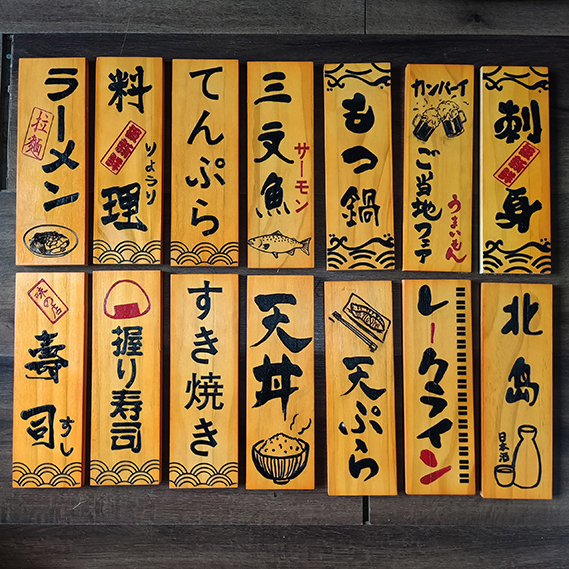 ラーメン
拉麺
料理
りょうり
てんぷら
三文魚
サーモン
もつ鍋
カンパーイ
ご当地フェア
うまいもん
刺身
味の店
壽司
すし
握り寿司
すき焼き
天丼
天ぷら
レークライン
北島
日本酒